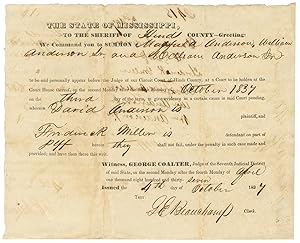 THE STATE OF MISSISSIPPI,
TO THE SHERIFF OF Hinds COUNTY—Greeting:
We Command you to SUMMON Anderson William
Anderson Sr. and William Anderson Jr
to be and personally appear before the Judge of our Circuit Court of Hinds County, at a Court to be holden at the
Court House thereof, on the second Monday after the Monday of October 1837
on the third day of thereof, to give evidence in a certain cause in said Court pending,
wherein David Anderson is
plaintiff, and
Frederick Miller is defendant on part of
Plff herein they shall in nowise omit, under the penalty prescribed; and
have then there this writ.
Witness, GEORGE COALTER, Judge of the Seventh Judicial District
of said State, on the second Monday after the fourth Monday of April
one thousand eight hundred and thirty seven
Issued the 4th day of October 1837
Test:
Beauchamp Clerk.